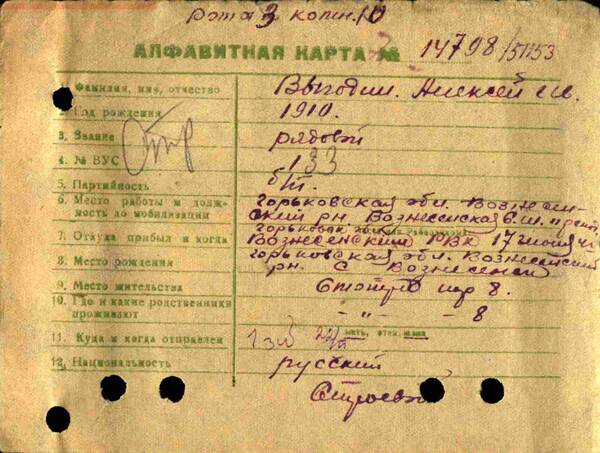 рота 3 комн. 10
АЛФАВИТНАЯ КАРТА № 14798/51153
1. Фамилия, имя, отчество Выгодин. Алексей
2. Год рождения 1910.
3. Звание рядовой
4. № ВУС 133
Отпр
5. Партийность б/п.
6. Место работы и должность до мобилизации горьковская обл. Вознесенский рн. Вознесенская
7. Откуда прибыл и когда Вознесенский РВК 17 июня 41
8. Место рождения горьковская обл. Вознесенский рн. с Вознесенск
9. Место жительства 8.
10. Где и какие родственники проживают — " — — 8
11. Куда и когда отправлен 1 зсб 22/VI мать, отец, жена
12. Национальность русский
Строевой